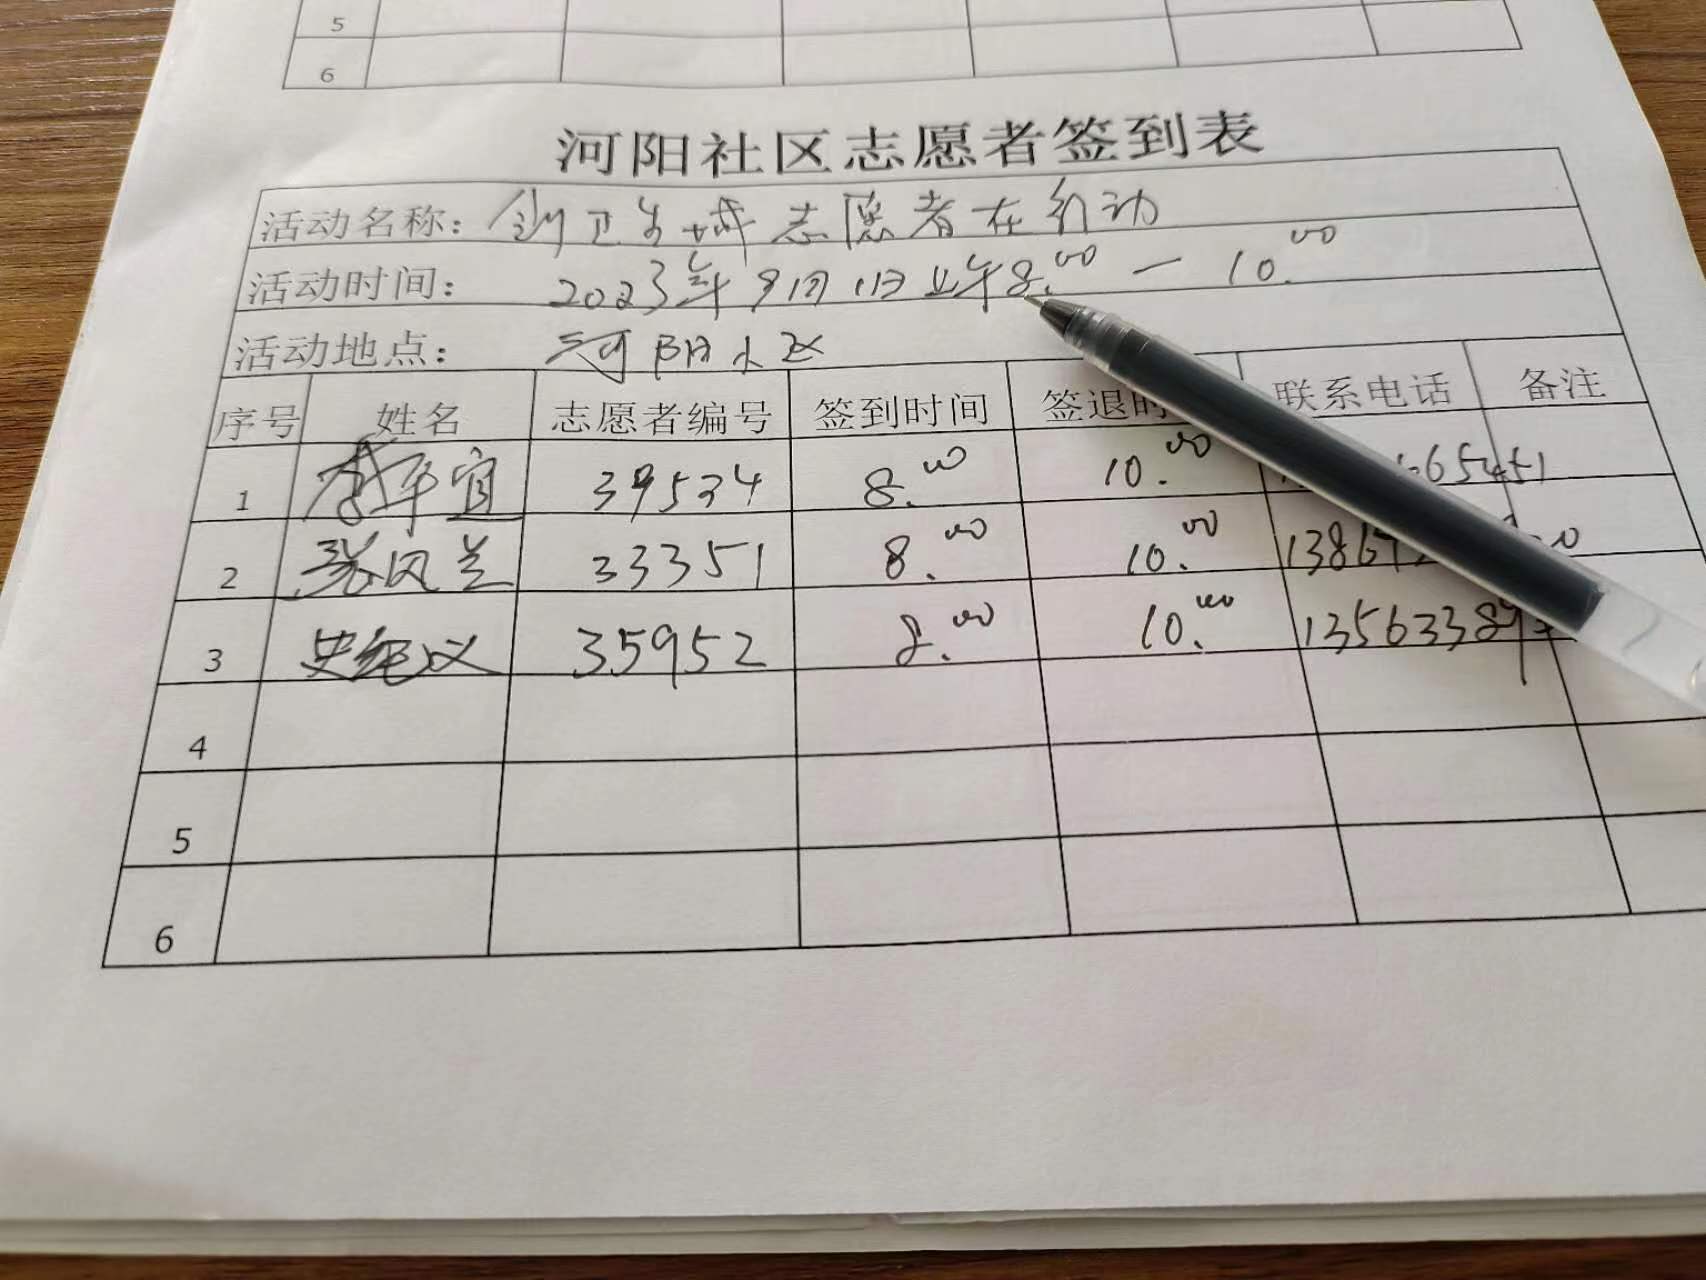 5
6
河阳社区志愿者签到表
活动名称: 创卫生城志愿者在行动
活动时间: 2023年9月1日上午8.00 — 10.00
活动地点: 河阳小区
序号 姓名 志愿者编号 签到时间 签退时 联系电话 备注
1 李平宜 39534 8.00 10.00 65451
2 张风兰 33351 8.00 10.00 1386
3 史纪义 35952 8.00 10.00 13563389
4
5
6